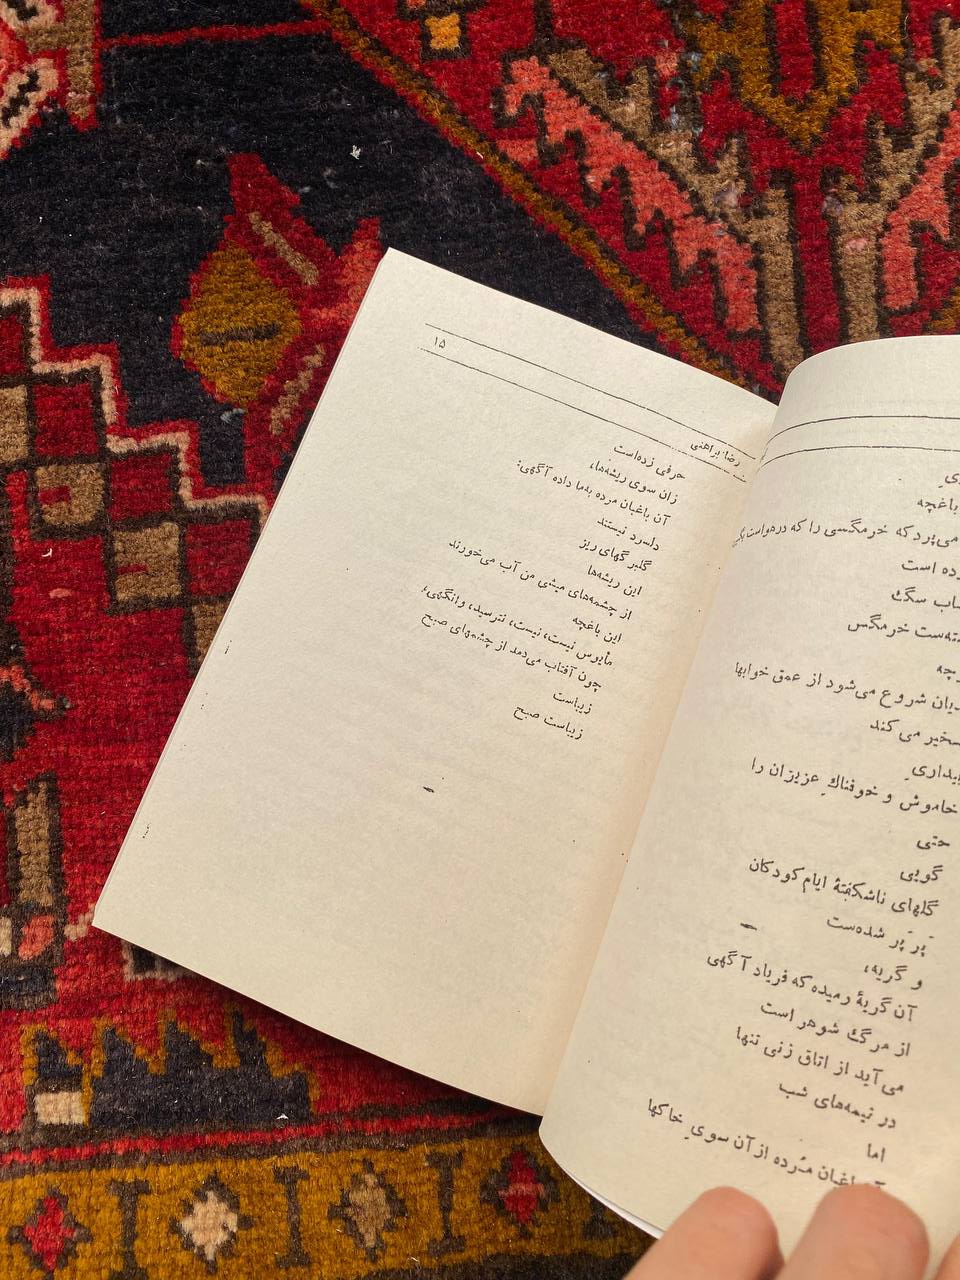 باغچه
می‌پرد که خرمگسی را که درهواست
است
سگ
خرمگس
شروع می‌شود از عمق خوابها
می کند
خاموش و خوفناكِ عزیزان را
حتی
گویی
گلهای ناشکفتهٔ ایام کودکان
پَرپَر شده‌ست
و گریه،
آن گریهٔ رمیده که فریاد آگهی
از مرگ شوهر است
می‌آید از اتاق زنی تنها
در نیمه‌های شب
اما
باغبان مُرده از آن سویِ خاکها
رضا براهنی ۱۵
حرفی زده‌است
زان سوی ریشه‌ها،
آن باغبان مرده به‌ما داده آگهی:
دلسرد نیستند
گلبرگهای ریز
این ریشه‌ها
از چشمه‌های میشی من آب می‌خورند
این باغچه
مأیوس نیست، نیست، نترسید، وانگهی،
چون آفتاب می‌دمد از چشمهای صبح
زیباست
زیباست صبح